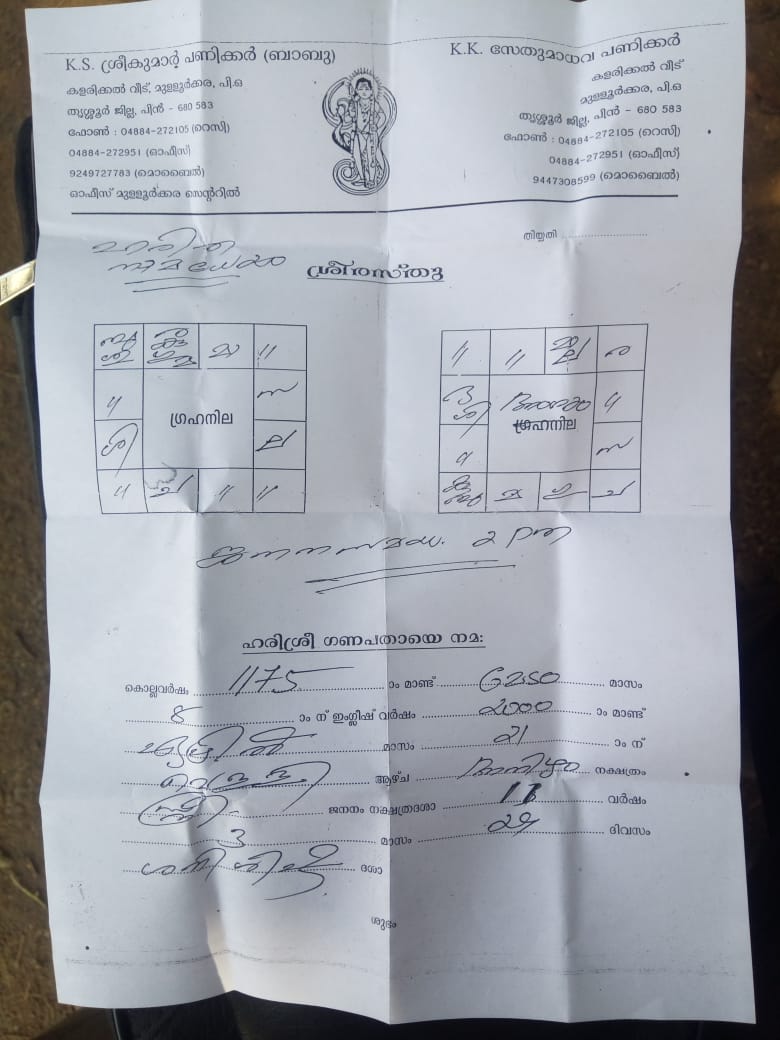 K.S. ശ്രീകുമാർ പണിക്കർ (ബാബു)
കളരിക്കൽ വീട്, മുള്ളൂർക്കര, പി.ഒ
തൃശ്ശൂർ ജില്ല, പിൻ - 680 583
ഫോൺ : 04884-272105 (റെസി)
04884-272951 (ഓഫീസ്)
9249727783 (മൊബൈൽ)
ഓഫീസ് മുള്ളൂർക്കര സെന്ററിൽ
K.K. സേതുമാധവ പണിക്കർ
കളരിക്കൽ വീട്
മുള്ളൂർക്കര, പി.ഒ
തൃശ്ശൂർ ജില്ല, പിൻ - 680 583
ഫോൺ : 04884-272105 (റെസി)
04884-272951 (ഓഫീസ്)
9447308599 (മൊബൈൽ)
തിയ്യതി
ഹരിത
ശ്രീരസ്തു
ഗ്രഹനില
ഗ്രഹനില
ജനനസമയം 2 PM
ഹരിശ്രീ ഗണപതായെ നമ:
കൊല്ലവർഷം 1175 ാം മാണ്ട് മേടം മാസം
8 ാം ന് ഇംഗ്ലീഷ് വർഷം 2000 ാം മാണ്ട്
ഏപ്രിൽ മാസം 21 ാം ന്
വെള്ളി ആഴ്ച അനിഴം നക്ഷത്രം
സ്ത്രീ ജനനം നക്ഷത്രദശാ വർഷം
3 മാസം 29 ദിവസം
ശനി ശിഷ്ട ദശാ
ശുഭം